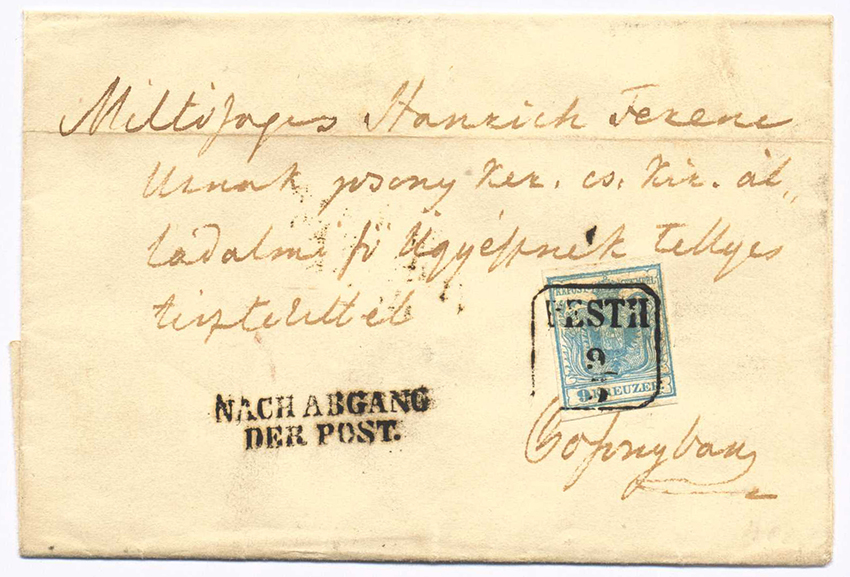 Méltóságos Hanrich Ferenc
Urnak posony ker. cs. kir. ál„
ladalmi fő Ügyésznek tellyes
tisztelettel
KKPOST-STEMPEL
PESTH
9
9 KREUZER
NACH ABGANG
DER POST.
Sopronyban